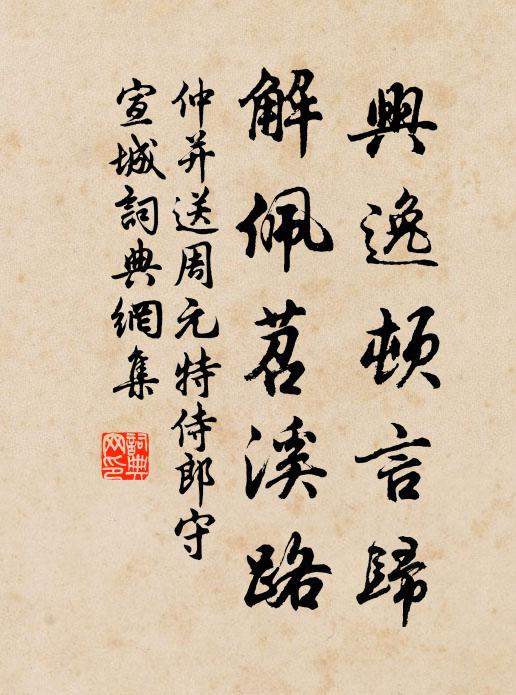 興逸頓言歸
解佩苕溪路
仲并送周元特侍郎守
宣城詞典網集
詞典
网印